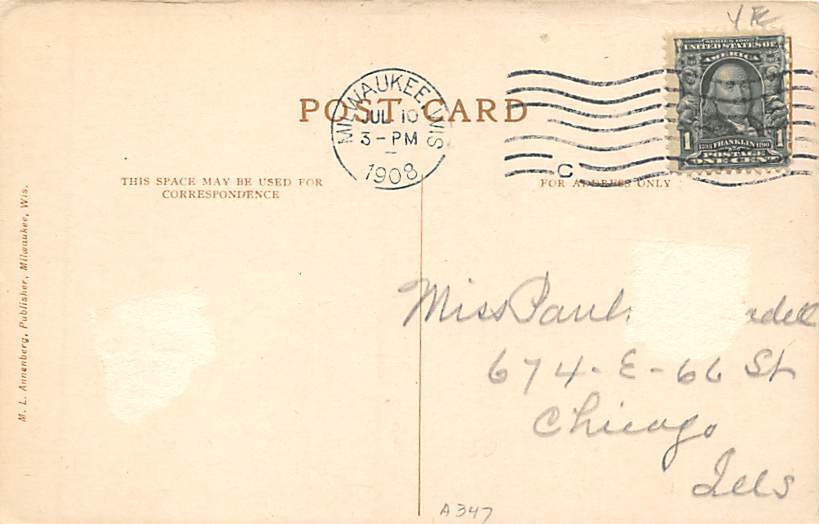 POST CARD
MILWAUKEE, WIS
JUL 10
3-PM
1908
C
SERIES 1902
UNITED STATES OF
AMERICA
1 FRANKLIN 1
POSTAGE
ONE CENT
THIS SPACE MAY BE USED FOR
CORRESPONDENCE
FOR ADDRESS ONLY
M. L. Annenberg, Publisher, Milwaukee, Wis.
Miss
674-E-66 St
Chicago
Ills
A347